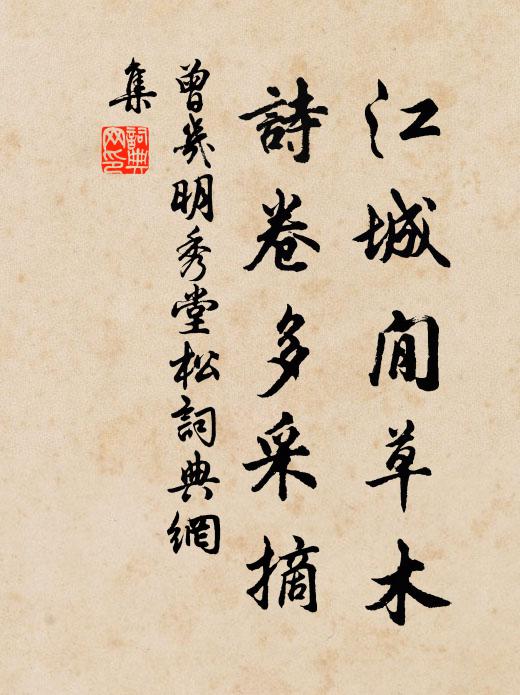 江城閒草木
詩卷多采摘
曾幾明秀堂松詞典網
集
詞典網印